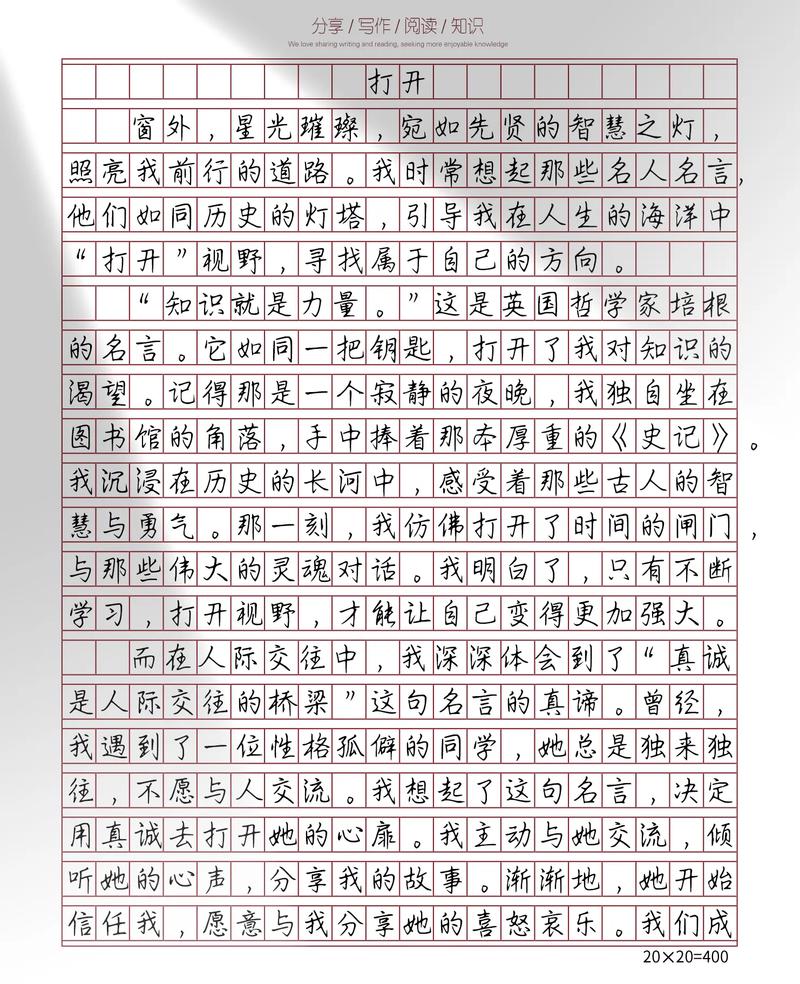 分享/写作/阅读/知识
We love sharing writing and reading, seeking more enjoyable knowledge
打开
窗外，星光璀璨，宛如先贤的智慧之灯，
照亮我前行的道路。我时常想起那些名人名言，
他们如同历史的灯塔，引导我在人生的海洋中
“打开”视野，寻找属于自己的方向。
“知识就是力量。”这是英国哲学家培根
的名言。它如同一把钥匙，打开了我对知识的
渴望。记得那是一个寂静的夜晚，我独自坐在
图书馆的角落，手中捧着那本厚重的《史记》。
我沉浸在历史的长河中，感受着那些古人的智
慧与勇气。那一刻，我仿佛打开了时间的闸门，
与那些伟大的灵魂对话。我明白了，只有不断
学习，打开视野，才能让自己变得更加强大。
而在人际交往中，我深深体会到了“真诚
是人际交往的桥梁”这句名言的真谛。曾经，
我遇到了一位性格孤僻的同学，她总是独来独
往，不愿与人交流。我想起了这句名言，决定
用真诚去打开她的心扉。我主动与她交流，倾
听她的心声，分享我的故事。渐渐地，她开始
信任我，愿意与我分享她的喜怒哀乐。我们成
20×20=400